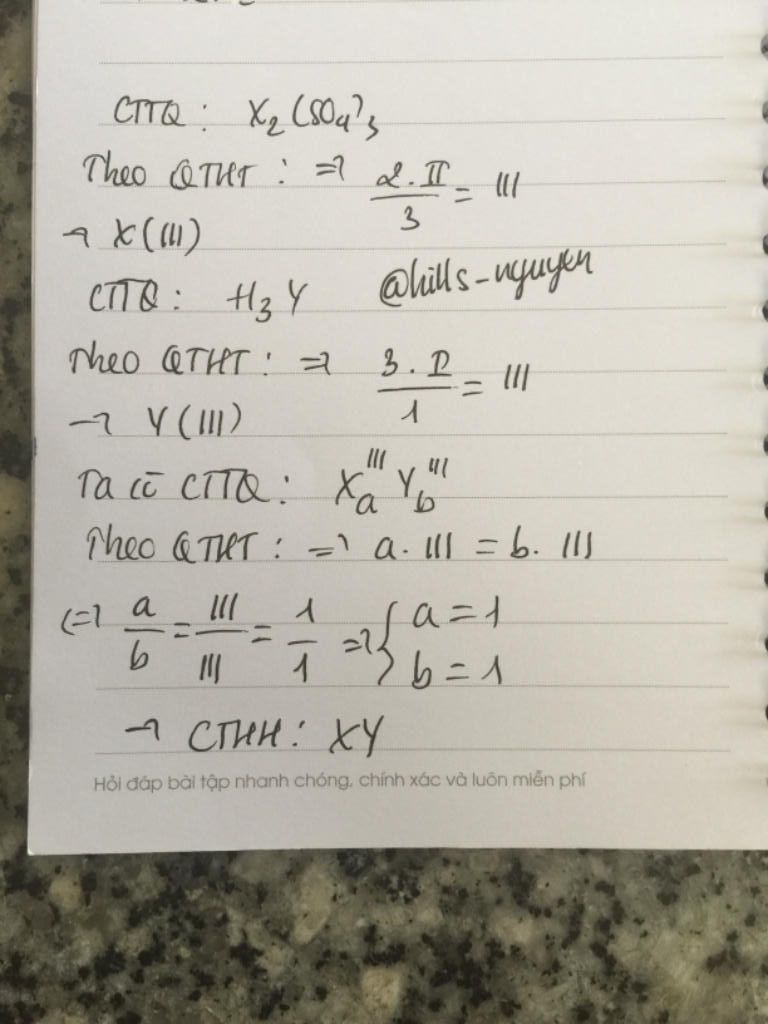 CTTQ : X₂(SO₄)₃
Theo QTHT : => 2.II/3 = III
→ X(III)
CTTQ : H₃Y @hills-nguyen
Theo QTHT : => 3.I/1 = III
→ Y(III)
Ta có CTTQ : Xₐᴵᴵᴵ Y_bᴵᴵᴵ
Theo QTHT : => a. III = b. III
<=> a/b = III/III = 1/1 => { a = 1
b = 1
→ CTHH : XY
Hỏi đáp bài tập nhanh chóng, chính xác và luôn miễn phí